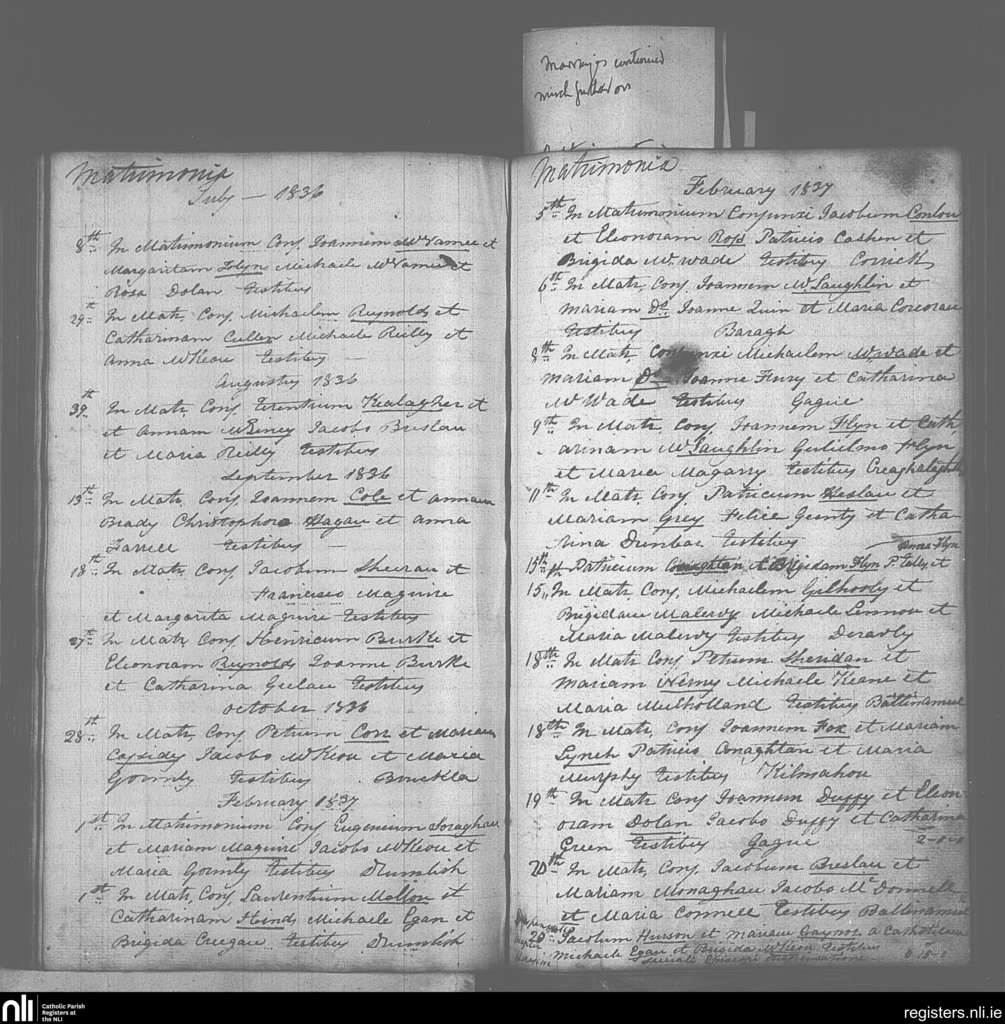 Marriages continued
much further on
Matrimonia
July — 1836
8th In Matrimonium Conj. Joannem McNamee et
Margaritam Flyn Michaele McNamee et
Rosa Dolan Testibus
29th In Matr. Conj. Michaelem Reynolds et
Catharinam Cullen Michaele Reilly et
Anna McKeon Testibus —
Augustus 1836
39th In Matr. Conj. Terentium Kealagher et
et Annam McBiney Jacobo Breslan
et Maria Reilly Testibus
September 1836
13th In Matr. Conj. Joannem Cole et Annam
Brady Christophoro Hagan et Anna
Farrell Testibus —
18th In Matr. Conj. Jacobum Sheeran et
Francisco Maguire
et Margarita Maguire Testibus
27th In Matr. Conj. Henricum Burke et
Elionoram Reynolds Joanne Burke
et Catharina Geelan Testibus
October 1836
28th In Matr. Conj. Petrum Corr et Mariam
Cassidy Jacobo McKeon et Maria
Gournly Testibus Brickla
February 1837
1st In Matrimonium Conj. Eugenium Soraghan
et Mariam Maguire Jacobo McKeon et
Maria Gournly Testibus Drumlish
1st In Matr. Conj. Laurentium Mallon et
Catharinam Hind, Michaele Egan et
Brigida Creegan Testibus Drumlish
Matrimonia
February 1837
5th In Matrimonium Conjunxi Jacobum Conlon
et Elionoram Ross Patricio Cashen et
Brigida McWade Testibus
6th In Matr. Conj. Joannem McLaughlin et
Mariam Do. Joanne Quin et Maria Corcoran
Testibus Baragh
8th In Matr. Conjunxi Michaelem McWade et
Mariam Joanne Fury et Catharina
McWade Testibus Gague
9th In Matr. Conj. Joannem Flyn et Cath
arinam McLaughlin Gulielmo Flyn
et Maria Magarry Testibus
11th In Matr. Conj. Patricium Heslan et
Mariam Grey Felice Geinty et Catha
rina Dunbar Testibus
Anna Flyn
15th Patricium Conaghtan et Brigidam Flyn P. et
15 In Matr. Conj. Michaelem Gilhooly et
Brigidam Malervy Michaele Lennon et
Maria Malervy Testibus Derawly
18th In Matr. Conj. Petrum Sheridan et
Mariam Henry Michaele Keane et
Maria Mulholland Testibus Ballinamuck
18th In Matr. Conj. Joannem Fox et Mariam
Lynch Patricio Conaghtan et Maria
Murphy Testibus Kilmahon
19th In Matr. Conj. Joannem Duffy et Elion-
oram Dolan Jacobo Duffy et Catharina
Green Testibus Gague 2-0-0
20th In Matr. Conj. Jacobum Breslan et
Mariam Monaghan Jacobo McDonnell
et Maria Connell Testibus Ballinamuck
20 Jacobum Hueson et Mariam Gaynor a Catholicam
Michaele Egan et Brigida McKeon Testibus
0-15-0
nli
Catholic Parish
Registers at
the NLI
registers.nli.ie